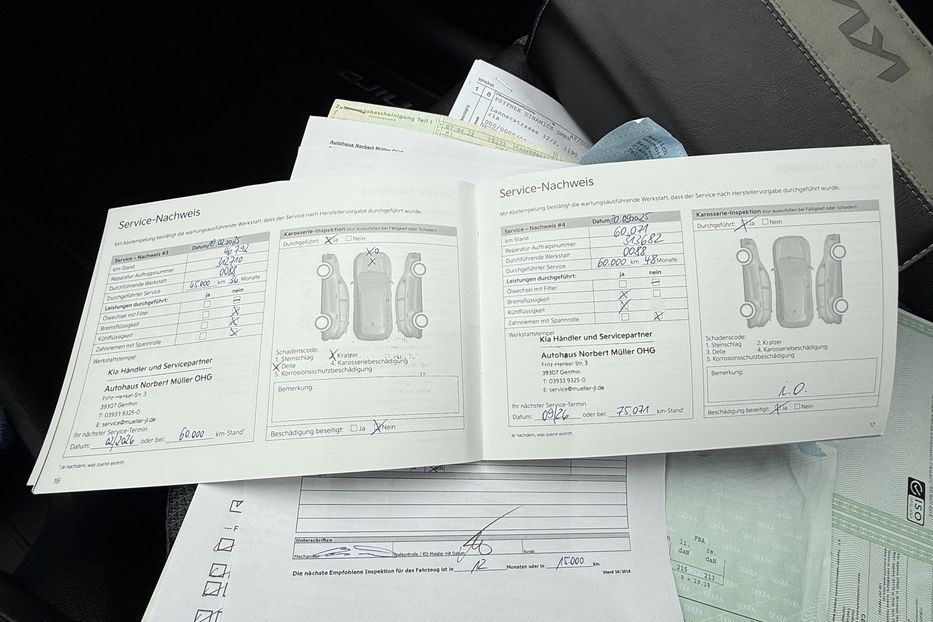 Zulassungsbescheinigung Teil I
PSYPHER DINAMICS GMBH
Lannerstrasse 32/2, 1190
Autohaus Norbert Müller OHG
Service-Nachweis
Mit Abstempelung bestätigt die wartungsausführende Werkstatt, dass der Service nach Herstellervorgabe durchgeführt wurde.
Service – Nachweis #3
Datum
km-Stand
Reparatur-Auftragsnummer 32710
Durchführende Werkstatt 0088
Durchgeführter Service 45.000 km 36 Monate
Leistungen durchgeführt: ja nein
Ölwechsel mit Filter
Bremsflüssigkeit
Kühlflüssigkeit
Zahnriemen mit Spannrolle
Werkstattstempel
Kia Händler und Servicepartner
Autohaus Norbert Müller OHG
Fritz-Henkel-Str. 3
39307 Genthin
T: 03933 9325-0
E: service@mueller-jl.de
Ihr nächster Service-Termin
Datum: 02/2026 oder bei: 60.000 km-Stand¹
¹Je nachdem, was zuerst eintritt.
16
Karosserie-Inspektion (nur auszufüllen bei Fälligkeit oder Schaden)
Durchgeführt: X Ja Nein
Schadenscode:
1. Steinschlag X Kratzer
X Delle 4. Karosseriebeschädigung
5. Korrosionsschutzbeschädigung
Bemerkung:
Beschädigung beseitigt: Ja X Nein
Service-Nachweis
Mit Abstempelung bestätigt die wartungsausführende Werkstatt, dass der Service nach Herstellervorgabe durchgeführt wurde.
Service – Nachweis #4
Datum 30.09.2025
km-Stand 60.071
Reparatur-Auftragsnummer 313682
Durchführende Werkstatt 0088
Durchgeführter Service 60.000 km 48 Monate
Leistungen durchgeführt: ja nein
Ölwechsel mit Filter
Bremsflüssigkeit X
Kühlflüssigkeit X
Zahnriemen mit Spannrolle X
Werkstattstempel
Kia Händler und Servicepartner
Autohaus Norbert Müller OHG
Fritz-Henkel-Str. 3
39307 Genthin
T: 03933 9325-0
E: service@mueller-jl.de
Ihr nächster Service-Termin
Datum: 09/26 oder bei: 75.071 km-Stand¹
¹Je nachdem, was zuerst eintritt.
Karosserie-Inspektion (nur auszufüllen bei Fälligkeit oder Schaden)
Durchgeführt: X Ja Nein
Schadenscode:
1. Steinschlag 2. Kratzer
3. Delle 4. Karosseriebeschädigung
5. Korrosionsschutzbeschädigung
Bemerkung:
i.O.
Beschädigung beseitigt: X Ja Nein
17
Unterschriften
Mechaniker
Endkontrolle / KD-Meister mit Datum
Kunde
Die nächste Empfohlene Inspektion für das Fahrzeug ist in 12 Monaten oder in 15.000 km
Stand 10/2018
FBA
li. re.
daN daN
215 213
z = 19.1%
DEKRA
ISO